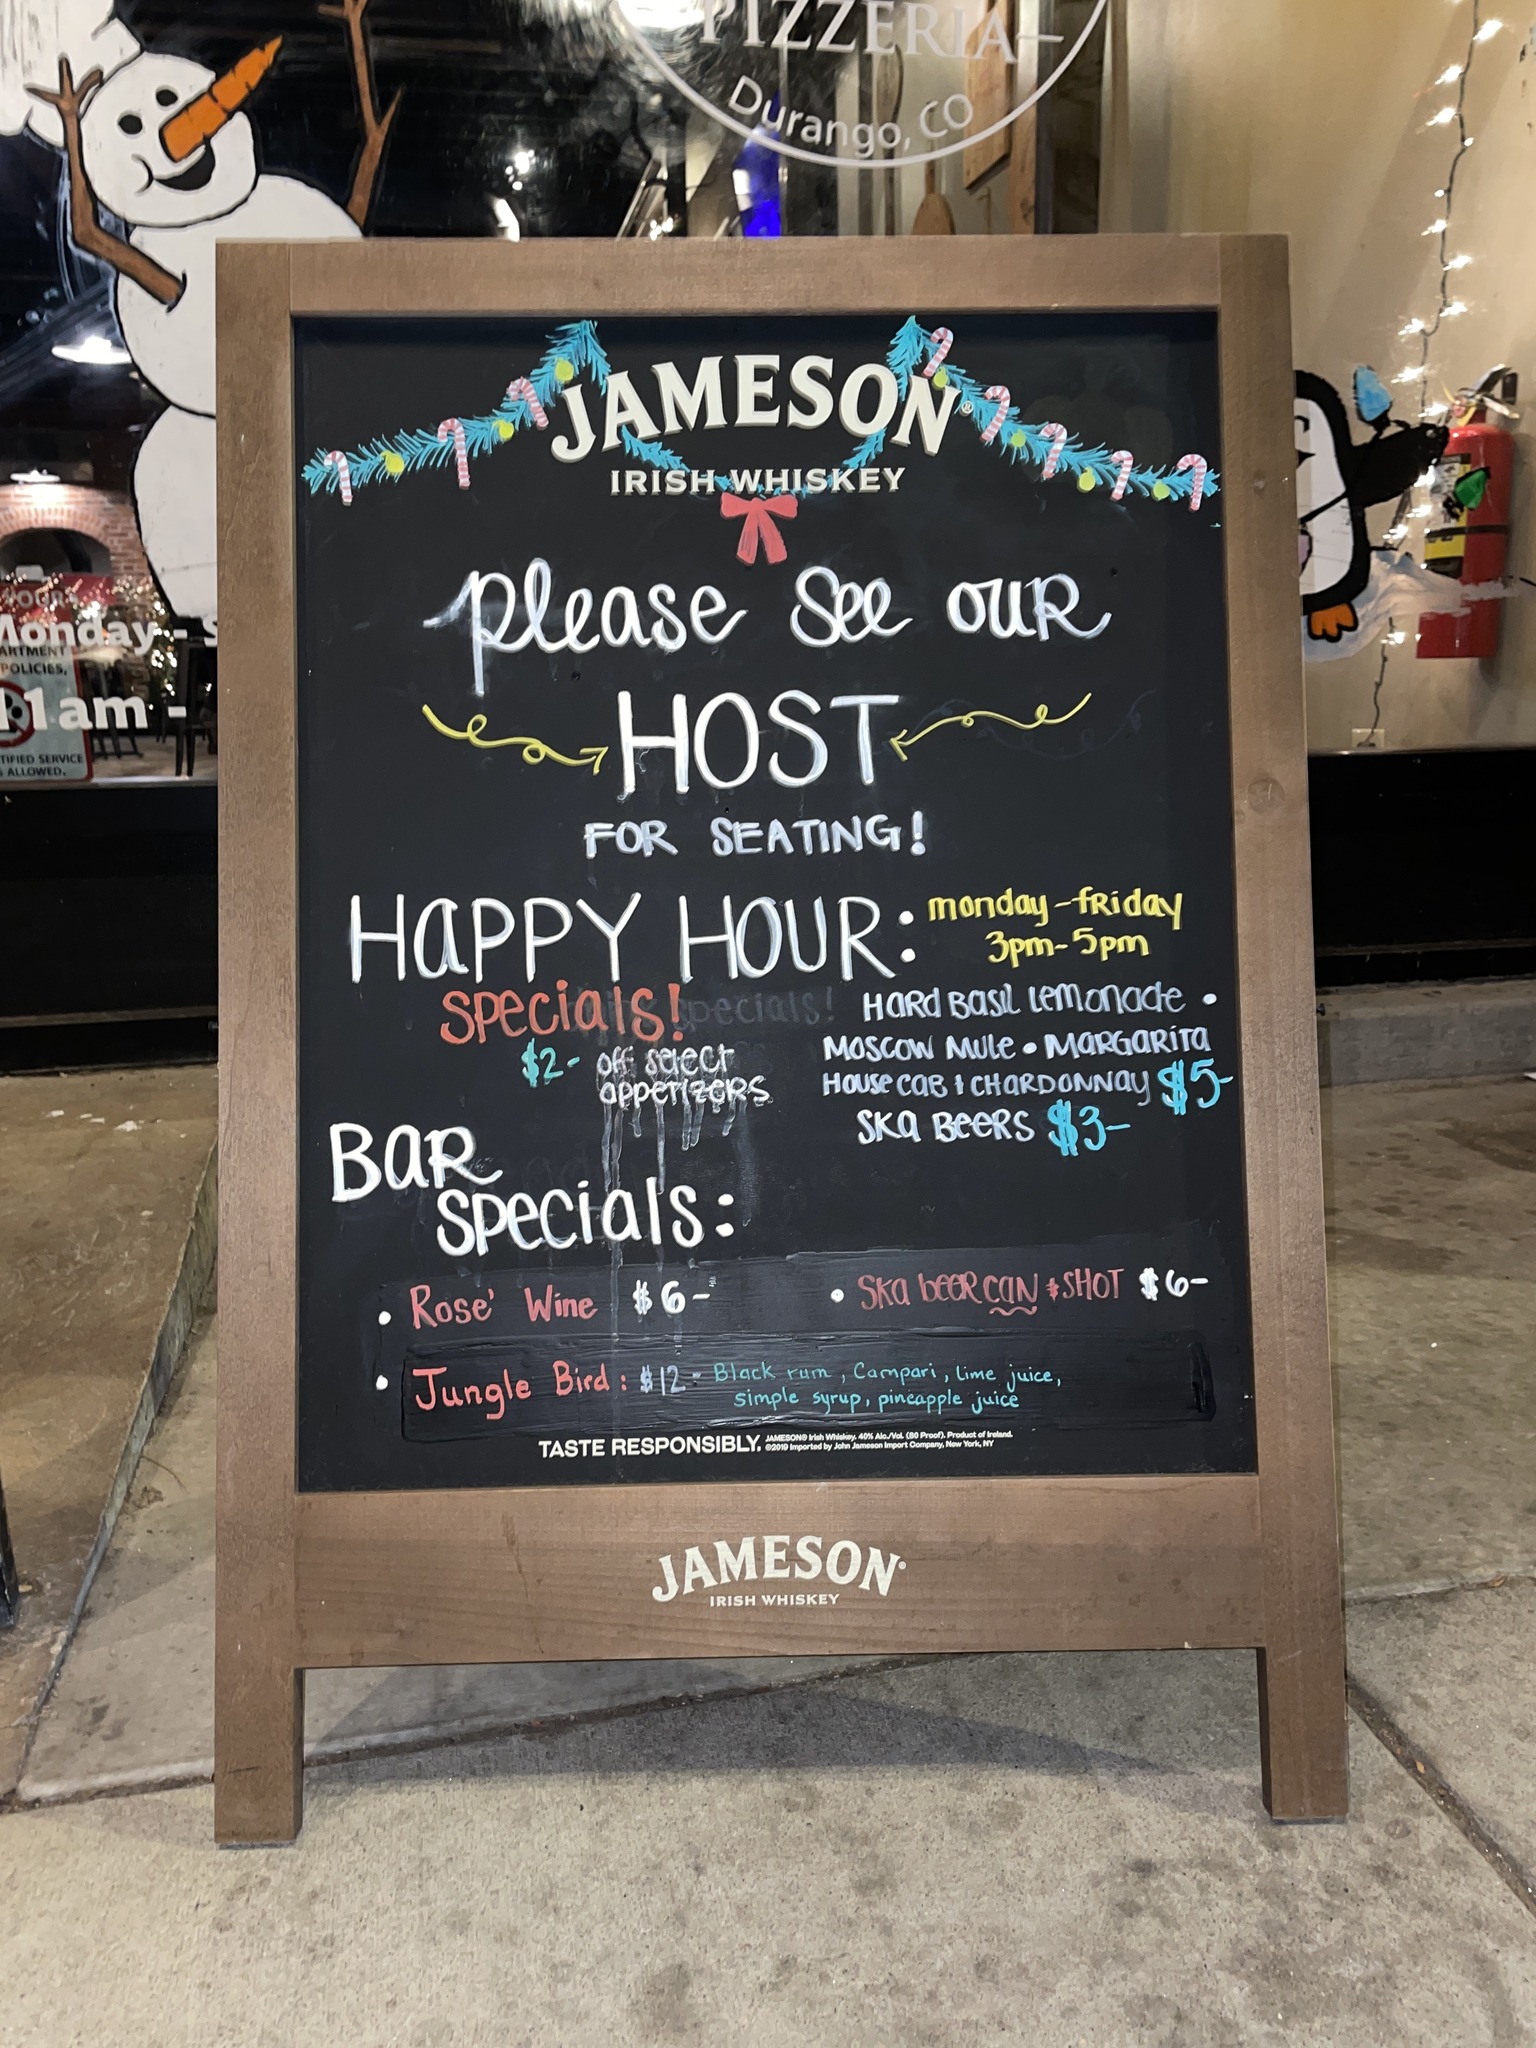 PIZZERIA
Durango, CO
JAMESON®
IRISH WHISKEY
please see our
HOST
FOR SEATING!
HAPPY HOUR: monday-friday
3pm-5pm
specials! specials!
$2- off select
appetizers
HARD BASIL LEMONADE •
MOSCOW MULE • MARGARITA
HOUSE CAB & CHARDONNAY $5-
SKA BEERS $3-
BAR
specials:
• Rose' Wine $6-
• Ska beer can & SHOT $6-
• Jungle Bird: $12- Black rum, Campari, lime juice,
simple syrup, pineapple juice
TASTE RESPONSIBLY. JAMESON® Irish Whiskey. 40% Alc./Vol. (80 Proof). Product of Ireland.
©2019 Imported by John Jameson Import Company, New York, NY
JAMESON®
IRISH WHISKEY
YOUR
Monday - S
ARTMENT
POLICIES,
11am -
TIFIED SERVICE
ALLOWED.